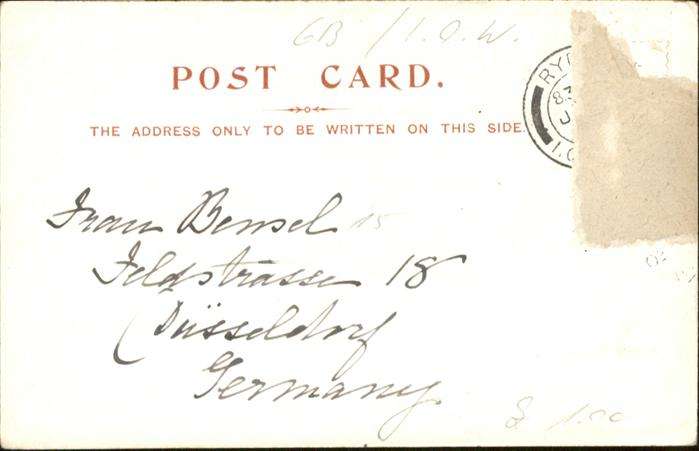 GB / I.O.W.
POST CARD.
THE ADDRESS ONLY TO BE WRITTEN ON THIS SIDE.
RY
83
J
I.O
Frau Bensel
Feldstrasse 18
Düsseldorf
Germany.
1.50